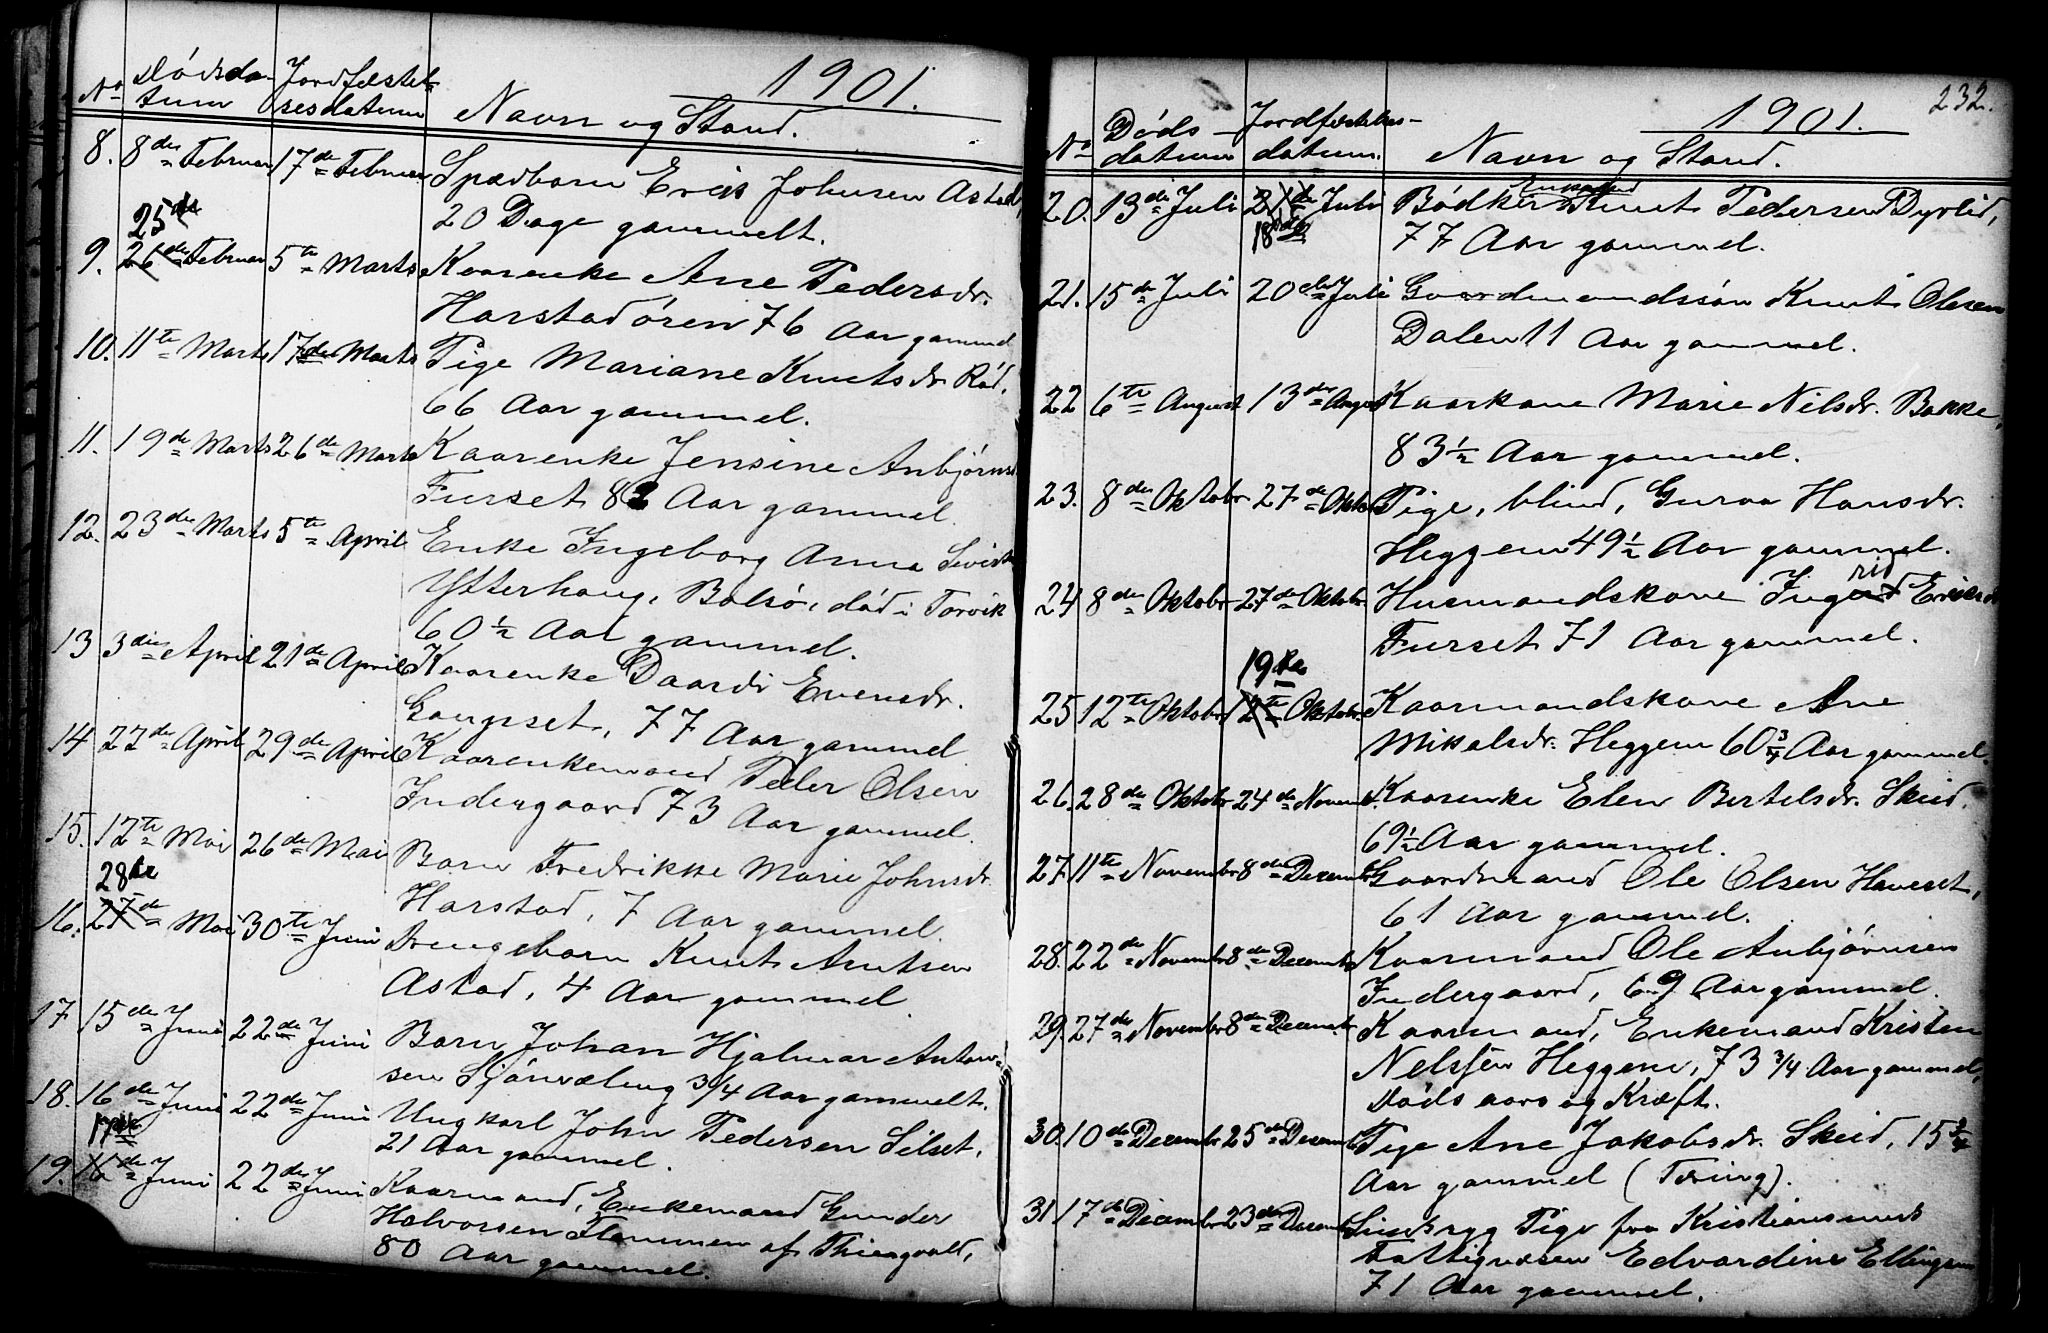 1901.
No Dødsda-tum Jordfæstel-sesdatum Navn og Stand.
8. 8de Februar 17de Februar Spædbarn Erik Johnsen Astad,
20 Dage gammelt.
25de
9. 26de Februar 5te Marts Kaarenke Ane Pedersdr.
Harstadøren 76 Aar gammel
10. 11te Marts 17de Marts Pige Mariane Knutsdr. Rød,
66 Aar gammel.
11. 19de Marts 26de Marts Kaarenke Jensine Anbjørnsd
Furset 82 Aar gammel.
12. 23de Marts 5te April Enke Ingeborg Anna
Ytterhaug, Bolsø, død i Torvik
60½ Aar gammel.
13 3die April 21de April Kaarenke Baardi Evensdr.
Gaupset, 77 Aar gammel
14 22de April 29de April Kaarenkemand Peder Olsen
Indergaard 73 Aar gammel.
15. 12te Mai 26de Mai Barn Fredrikke Marie Johnsdr.
Harstad, 7 Aar gammel.
28de
16. 27de Mai 30te Juni Drengebarn Knut Knutsen
Astad, 4 Aar gammel
17 15de Juni 22de Juni Barn Johan Hjalmar Anton-
sen 3/4 Aar gammelt.
18. 16de Juni 22de Juni Ungkarl John Pedersen Silset,
21 Aar gammel.
17de
19. 16de Juni 22de Juni Kaarmand, Enkemand Gunder
Halvorsen Flemmen af Thingvold,
80 Aar gammel.
232.
1901.
No Døds-datum Jordfæstelses-datum. Navn og Stand.
Enkemand
20. 13de Juli 21de Juli Bødker Knut Pedersen Dyrlid,
18de
77 Aar gammel.
21. 15de Juli 20de Juli Gaardmandssøn Knut Olsen
Dalen 11 Aar gammel.
22 6te August 13de August Kaarkone Marie Nilsdr. Bakke,
83½ Aar gammel.
23. 8de Oktobr 27de Oktobr Pige, blind, Guroa Hansdr.
Heggem 49½ Aar gammel.
rid
24 8de Oktobr 27de Oktobr Husmandskone Ingerid Eriksdr
Furset 71 Aar gammel.
19de
25 12te Oktobr 12te Oktobr Kaarmandskone Ane
Mikalsdr. Heggem 60¾ Aar gammel.
26. 28de Oktobr 24de Novembr. Kaarenke Elen Bertelsdr. Skeid.
69½ Aar gammel.
27. 11te Novembr 8de Decembr Gaardmand Ole Olsen Haveset,
61 Aar gammel.
28. 22de Novembr 8de Decembr Kaarmand Ole Anbjørnsen
Indergaard, 69 Aar gammel.
29. 27de Novembr 8de Decembr Kaarmand, Enkemand Kristen
Nelsen Heggem, 73 3/4 Aar gammel,
Døds aars og Kræft.
30. 10de Decembr 25de Decembr Pige Ane Jakobsdr. Skeid, 15¾
Aar gammel (Tæring).
31 17de Decembr 23de Decembr Sindssyg Pige fra Kristiansund
Fattigvæsen Edvardine Ellingsen
71 Aar gammel.